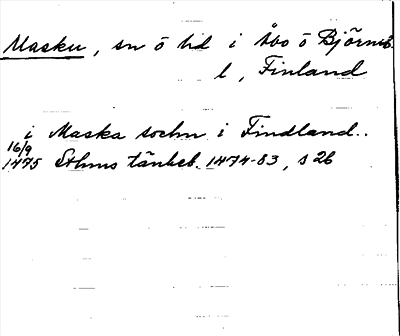 Masku, sn ö hd i Åbo ö Björneb.
l, Finland
i Maska sochn i Findland..
16/9
1475 Sthms tänkeb. 1474-83, s 26